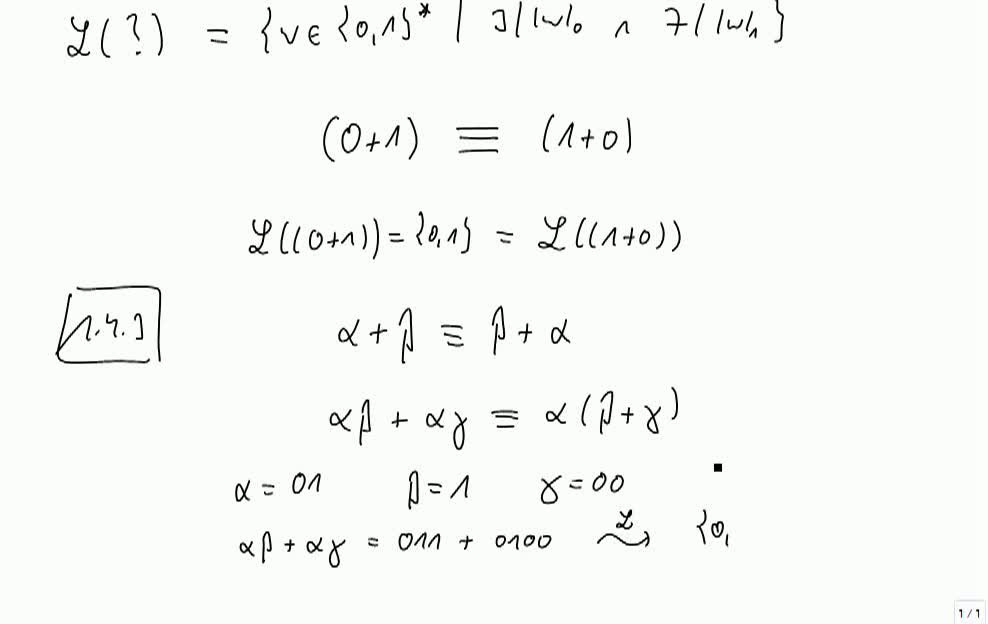 ℒ(?) = {v ∈ {0,1}* | 3/|w|₀ ∧ 7/|w|₁}
(0+1) ≡ (1+0)
ℒ((0+1)) = {0,1} = ℒ((1+0))
1.4.3
α + β ≡ β + α
αβ + αγ ≡ α(β+γ)
α = 01 β = 1 γ = 00
αβ + αγ = 011 + 0100 ℒ⤳ {0,
1 / 1